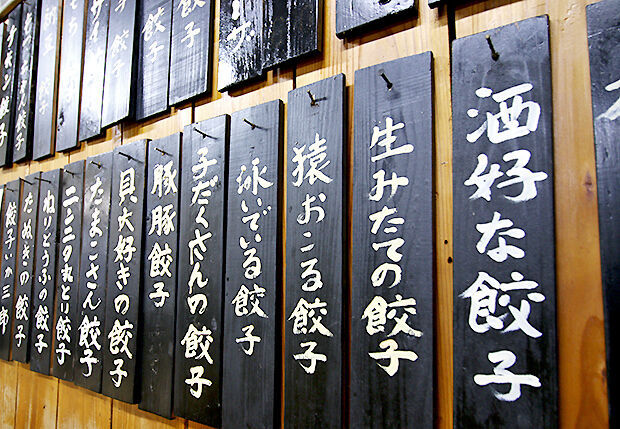 餃子
餃子
餃子
酒好な餃子
生みたての餃子
猿おこる餃子
泳いでいる餃子
子だくさんの餃子
豚豚餃子
貝大好きの餃子
たまこさん餃子
丸とり餃子
ねりとうふの餃子
たぬきの餃子
餃子いか三郎